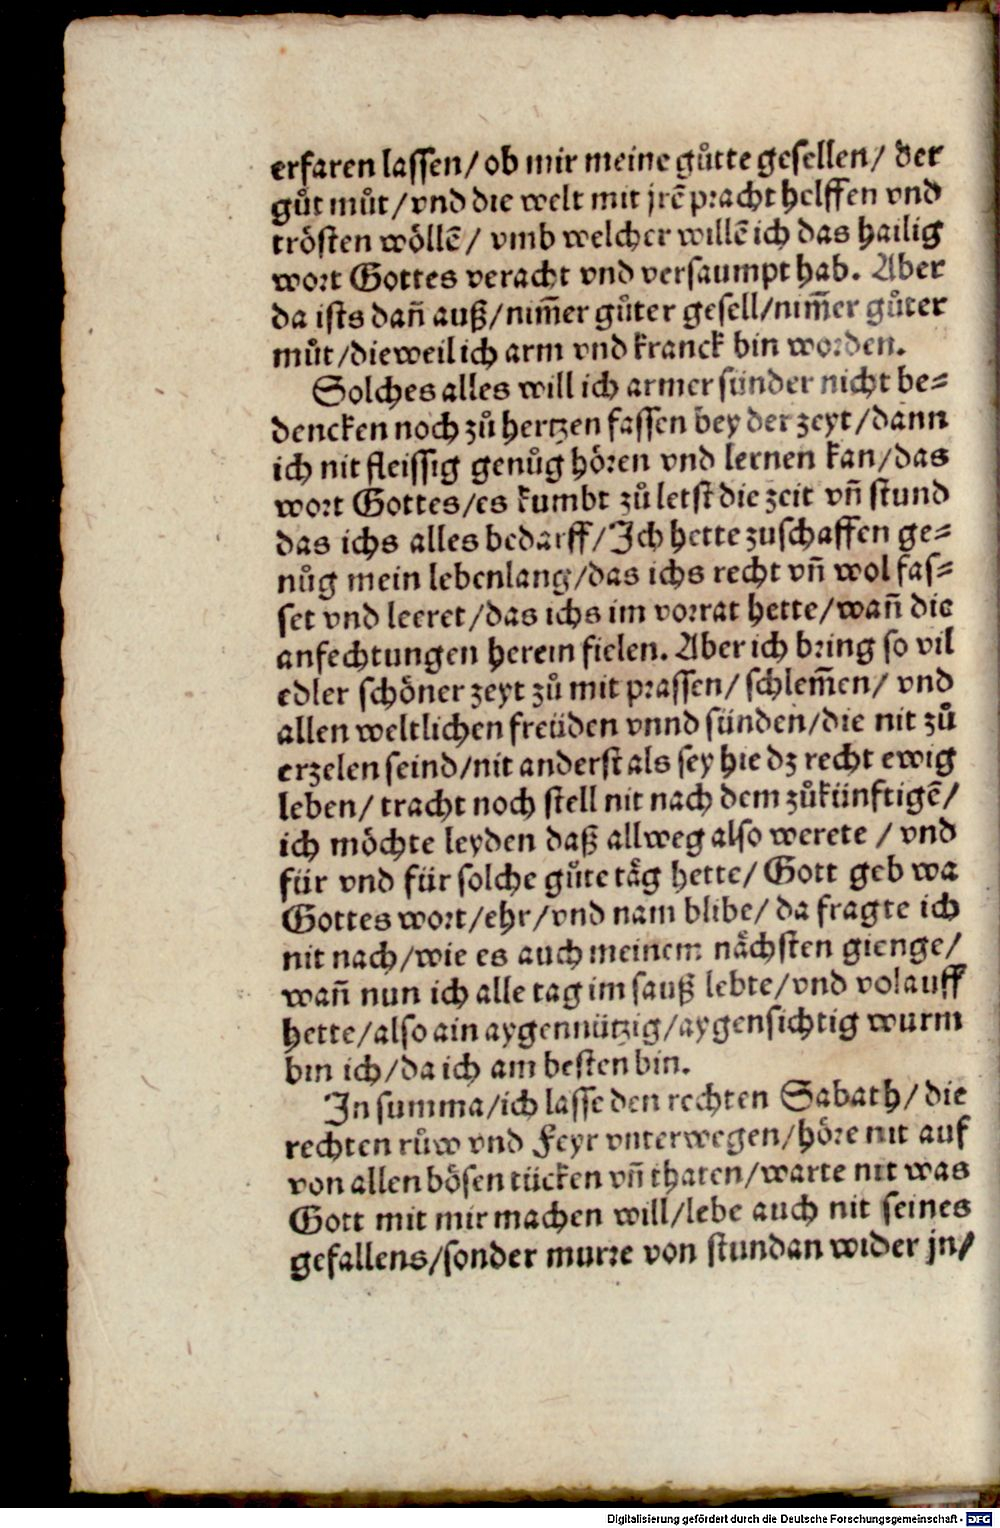 erfaren lassen/ ob mir meine gůtte gesellen/ der
gůt můt/vnd die welt mit jrẽ pracht helffen vnd
trösten wöllẽ/ vmb welcher willẽ ich das hailig
wort Gottes veracht vnd versaumpt hab. Aber
da ists dañ auß/nim̃er gůter gesell/nim̃er gůter
můt/dieweil ich arm vnd kranck bin worden.
Solches alles will ich armer sünder nicht be=
dencken noch zů hertzen fassen bey der zeyt/dann
ich nit fleissig genůg hören vnd lernen kan/das
wort Gottes/es kumbt zů letst die zeit vñ stund
das ichs alles bedarff/Ich hette zuschaffen ge=
nůg mein lebenlang/das ichs recht vñ wol fas=
set vnd leeret/das ichs im vorrat hette/wañ die
anfechtungen herein fielen. Aber ich bring so vil
edler schöner zeyt zů mit prassen/ schlem̃en/ vnd
allen weltlichen freüden vnnd sünden/die nit zů
erzelen seind/nit anderst als sey hie dz recht ewig
leben/ tracht noch stell nit nach dem zůkünftigẽ/
ich möchte leyden daß allweg also werete / vnd
für vnd für solche gůte täg hette/ Gott geb wa
Gottes wort/ehr/vnd nam blibe/ da fragte ich
nit nach/wie es auch meinem nächsten gienge/
wañ nun ich alle tag im sauß lebte/vnd volauff
hette/also ain aygennützig/aygensichtig wurm
bin ich/da ich am besten bin.
In summa/ich lasse den rechten Sabath/ die
rechten růw vnd Feyr vnterwegen/höre nit auf
von allen bösen tücken vñ thaten/warte nit was
Gott mit mir machen will/lebe auch nit seines
gefallens/sonder murre von stundan wider jn/
Digitalisierung gefördert durch die Deutsche Forschungsgemeinschaft - DFG